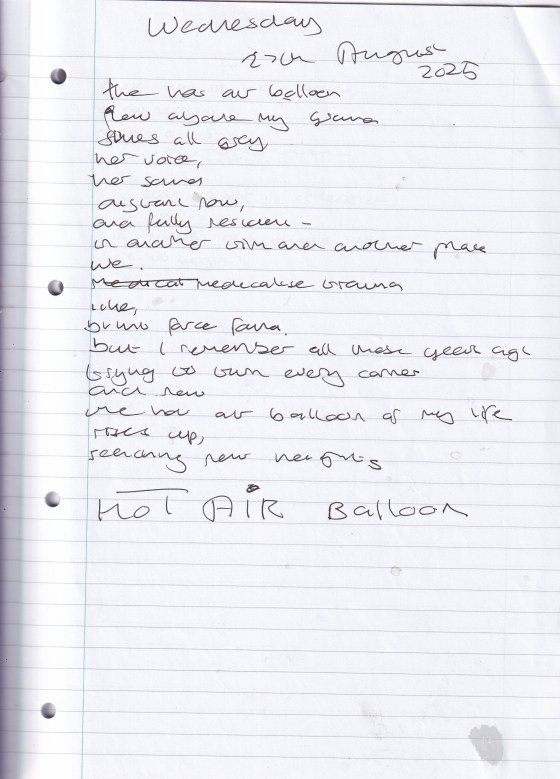 Wednesday
27th August
2025
the hot air balloon
flew above my
all grey
her voice,
her
distant now,
and fully
in another time and another place
we.
medicalise trauma
like,
force
but I remember all those years ago
trying to turn every corner
and now
the hot air balloon of my life
rises up,
reaching new heights
HOT AIR Balloon